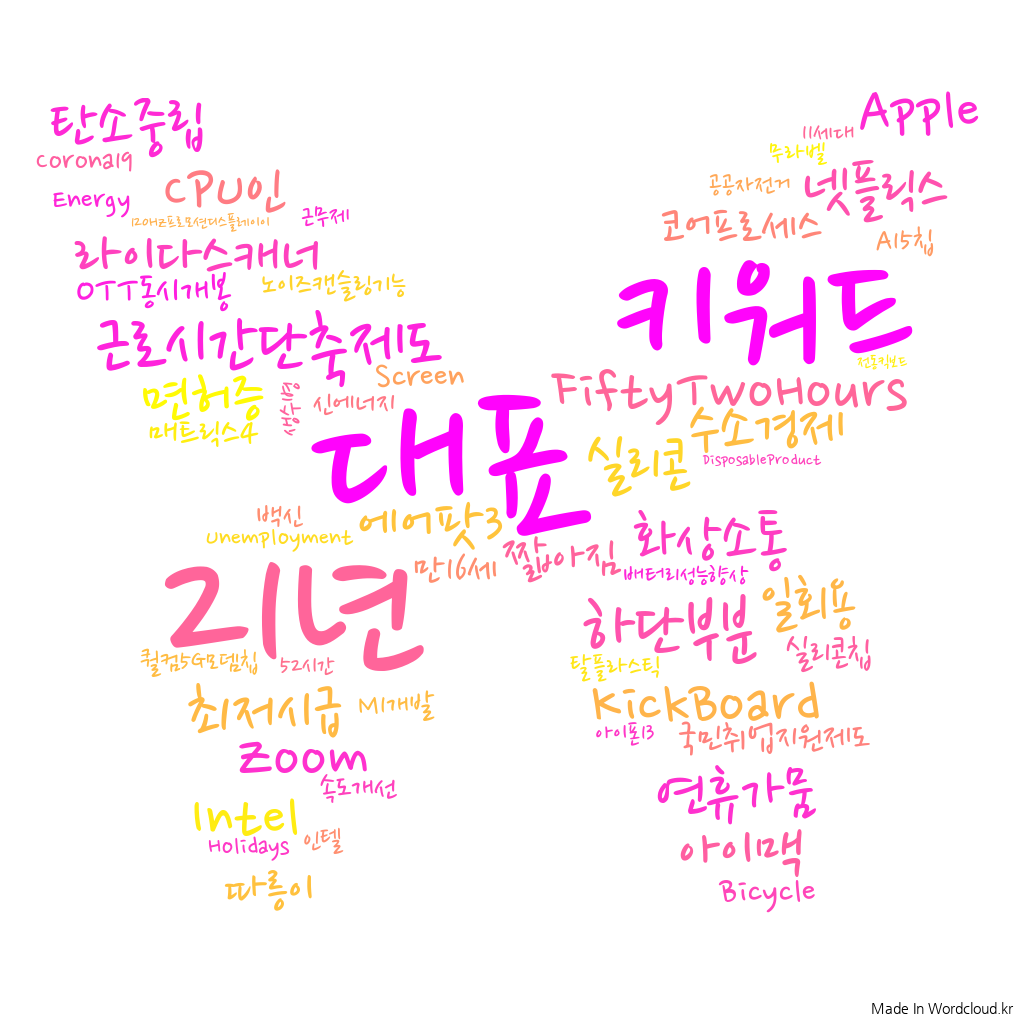 탄소중립
Apple
Corona19
11세대
무라벨
Energy
CPU인
공공자전거
넷플릭스
120Hz프로모션디스플레이이
근무제
코어프로세스
A15칩
라이다스캐너
OTT동시개봉
노이즈캔슬링기능
키워드
근로시간단축제도
전동킥보드
면허증
Screen
FiftyTwoHours
신에너지
매트릭스4
대표
실리콘
수소경제
DisposableProduct
백신
Unemployment
에어팟3
짧아짐
만16세
화상소통
배터리성능향상
21년
하단부분
일회용
퀄컴5G모뎀칩
52시간
탈플라스틱
실리콘칩
최저시급
M1개발
KickBoard
아이폰13
국민취업지원제도
Zoom
속도개선
연휴가뭄
Intel
Holidays
인텔
아이맥
따릉이
Bicycle
Made In Wordcloud.kr